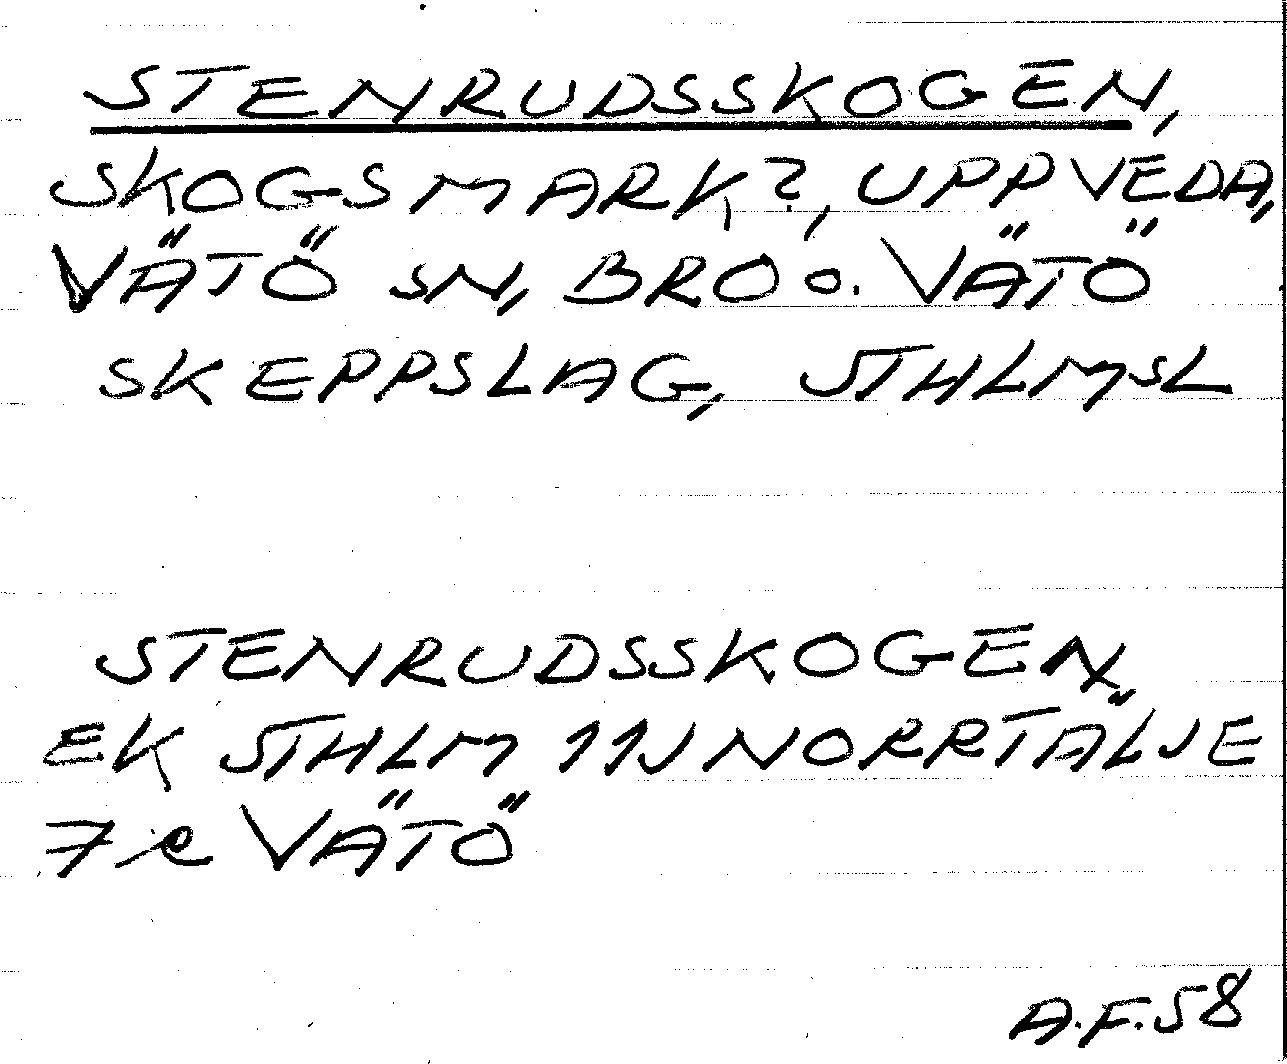 STENRUDSSKOGEN,
SKOGSMARK?, UPPVEDA,
VÄTÖ SN, BRO O. VÄTÖ
SKEPPSLAG, STHLMSL
STENRUDSSKOGEN,
EK STHLM 11J NORRTÄLJE
7 e VÄTÖ
A.F.58